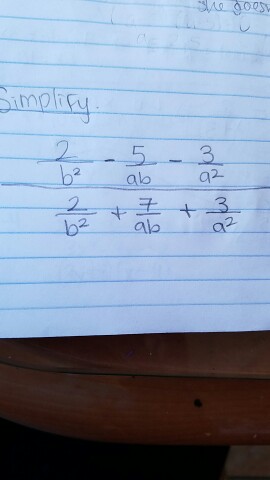 she does
Simplify.
2/b² - 5/ab - 3/a²
2/b² + 7/ab + 3/a²